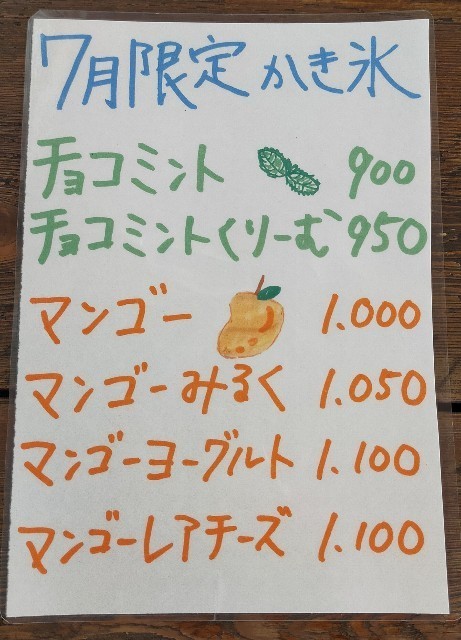 7月限定 かき氷
チョコミント 900
チョコミントくりーむ 950
マンゴー 1.000
マンゴーみるく 1.050
マンゴーヨーグルト 1.100
マンゴーレアチーズ 1.100